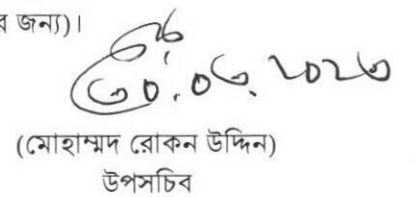 র জন্য)।
৩০.০৬.২০২৩
(মোহাম্মদ রোকন উদ্দিন)
উপসচিব